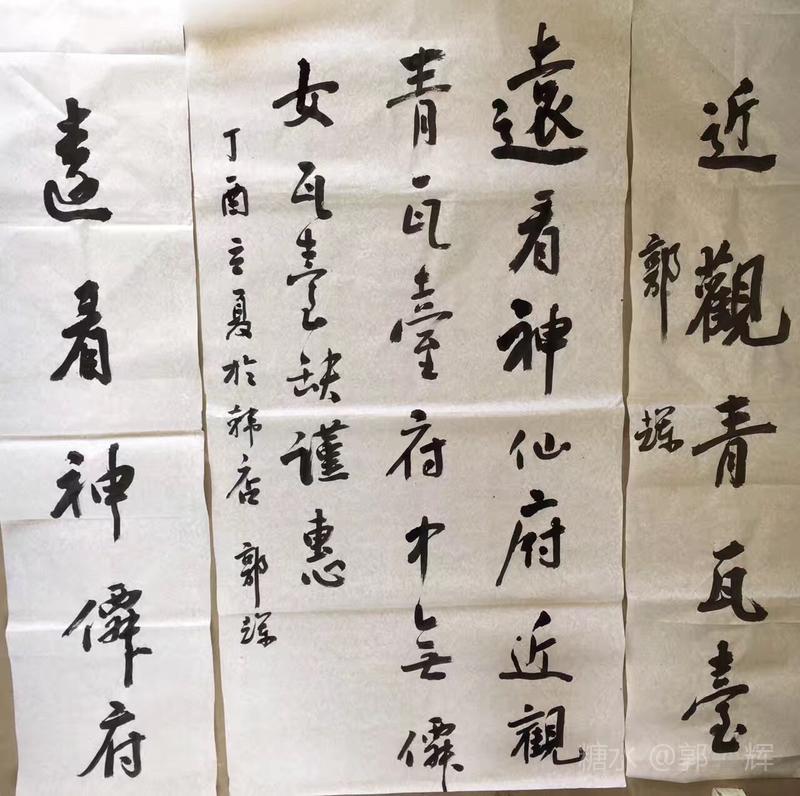 近觀青瓦臺
郭
遠看神仙府近觀
青瓦臺府中無僊
女瓦臺缺謹惠
丁酉立夏於韩店 郭
遠看神僊府
糖水 @郭一辉